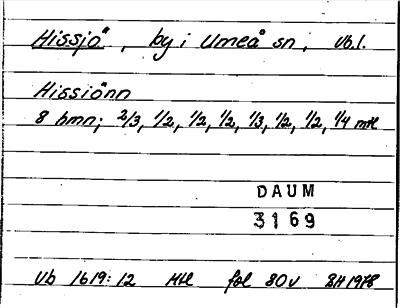 Hissjö, by i Umeå sn, Vb.l.
Hissiönn
8 bmn; 2/3, 1/2, 1/2, 1/2, 1/3, 1/2, 1/2, 1/4 mtl
DAUM
3169
Vb 1619:12 Mtl fol 80v BH 1978